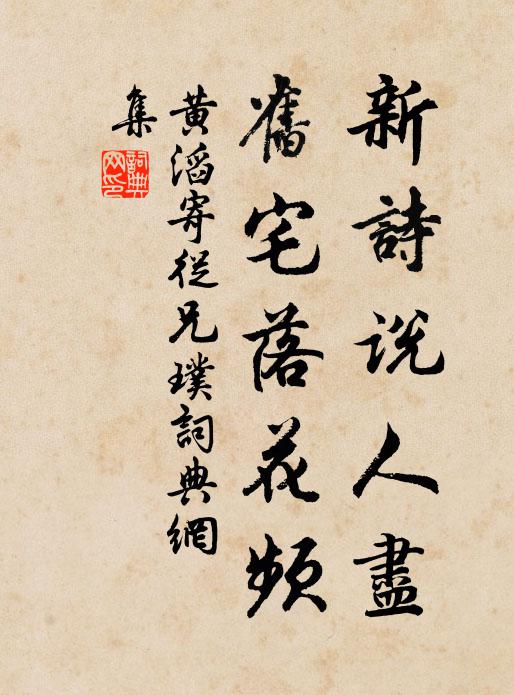 新詩説人盡
舊宅落花頻
黄滔寄從兄璞詞典網
集
詞典網印